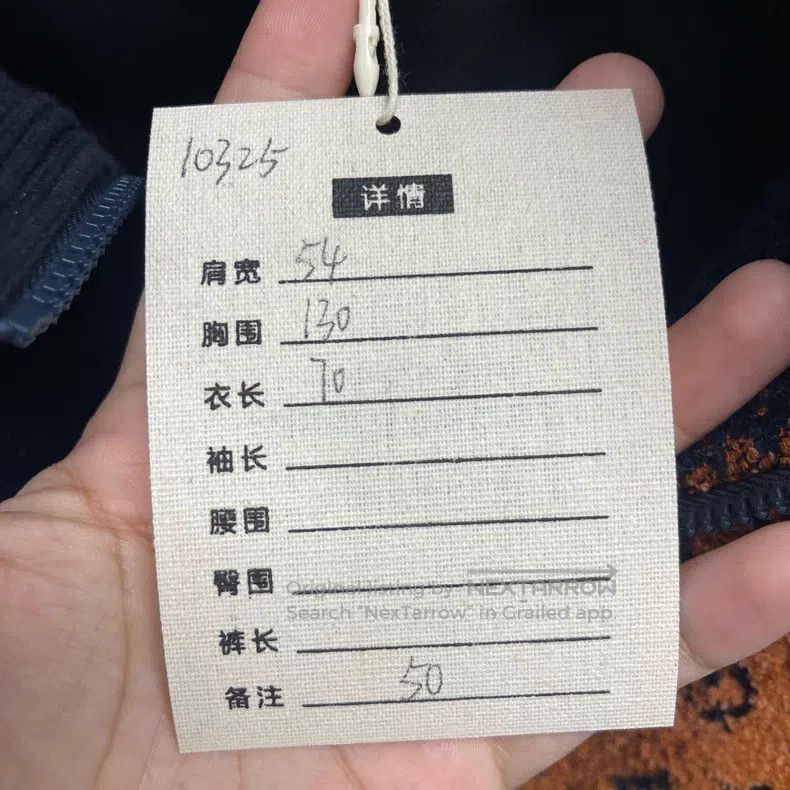 10325
详情
肩宽 54
胸围 130
衣长 70
袖长
腰围
臀围
Original listing by NEXTARROW
Search "NexTarrow" in Grailed app
裤长
备注 50